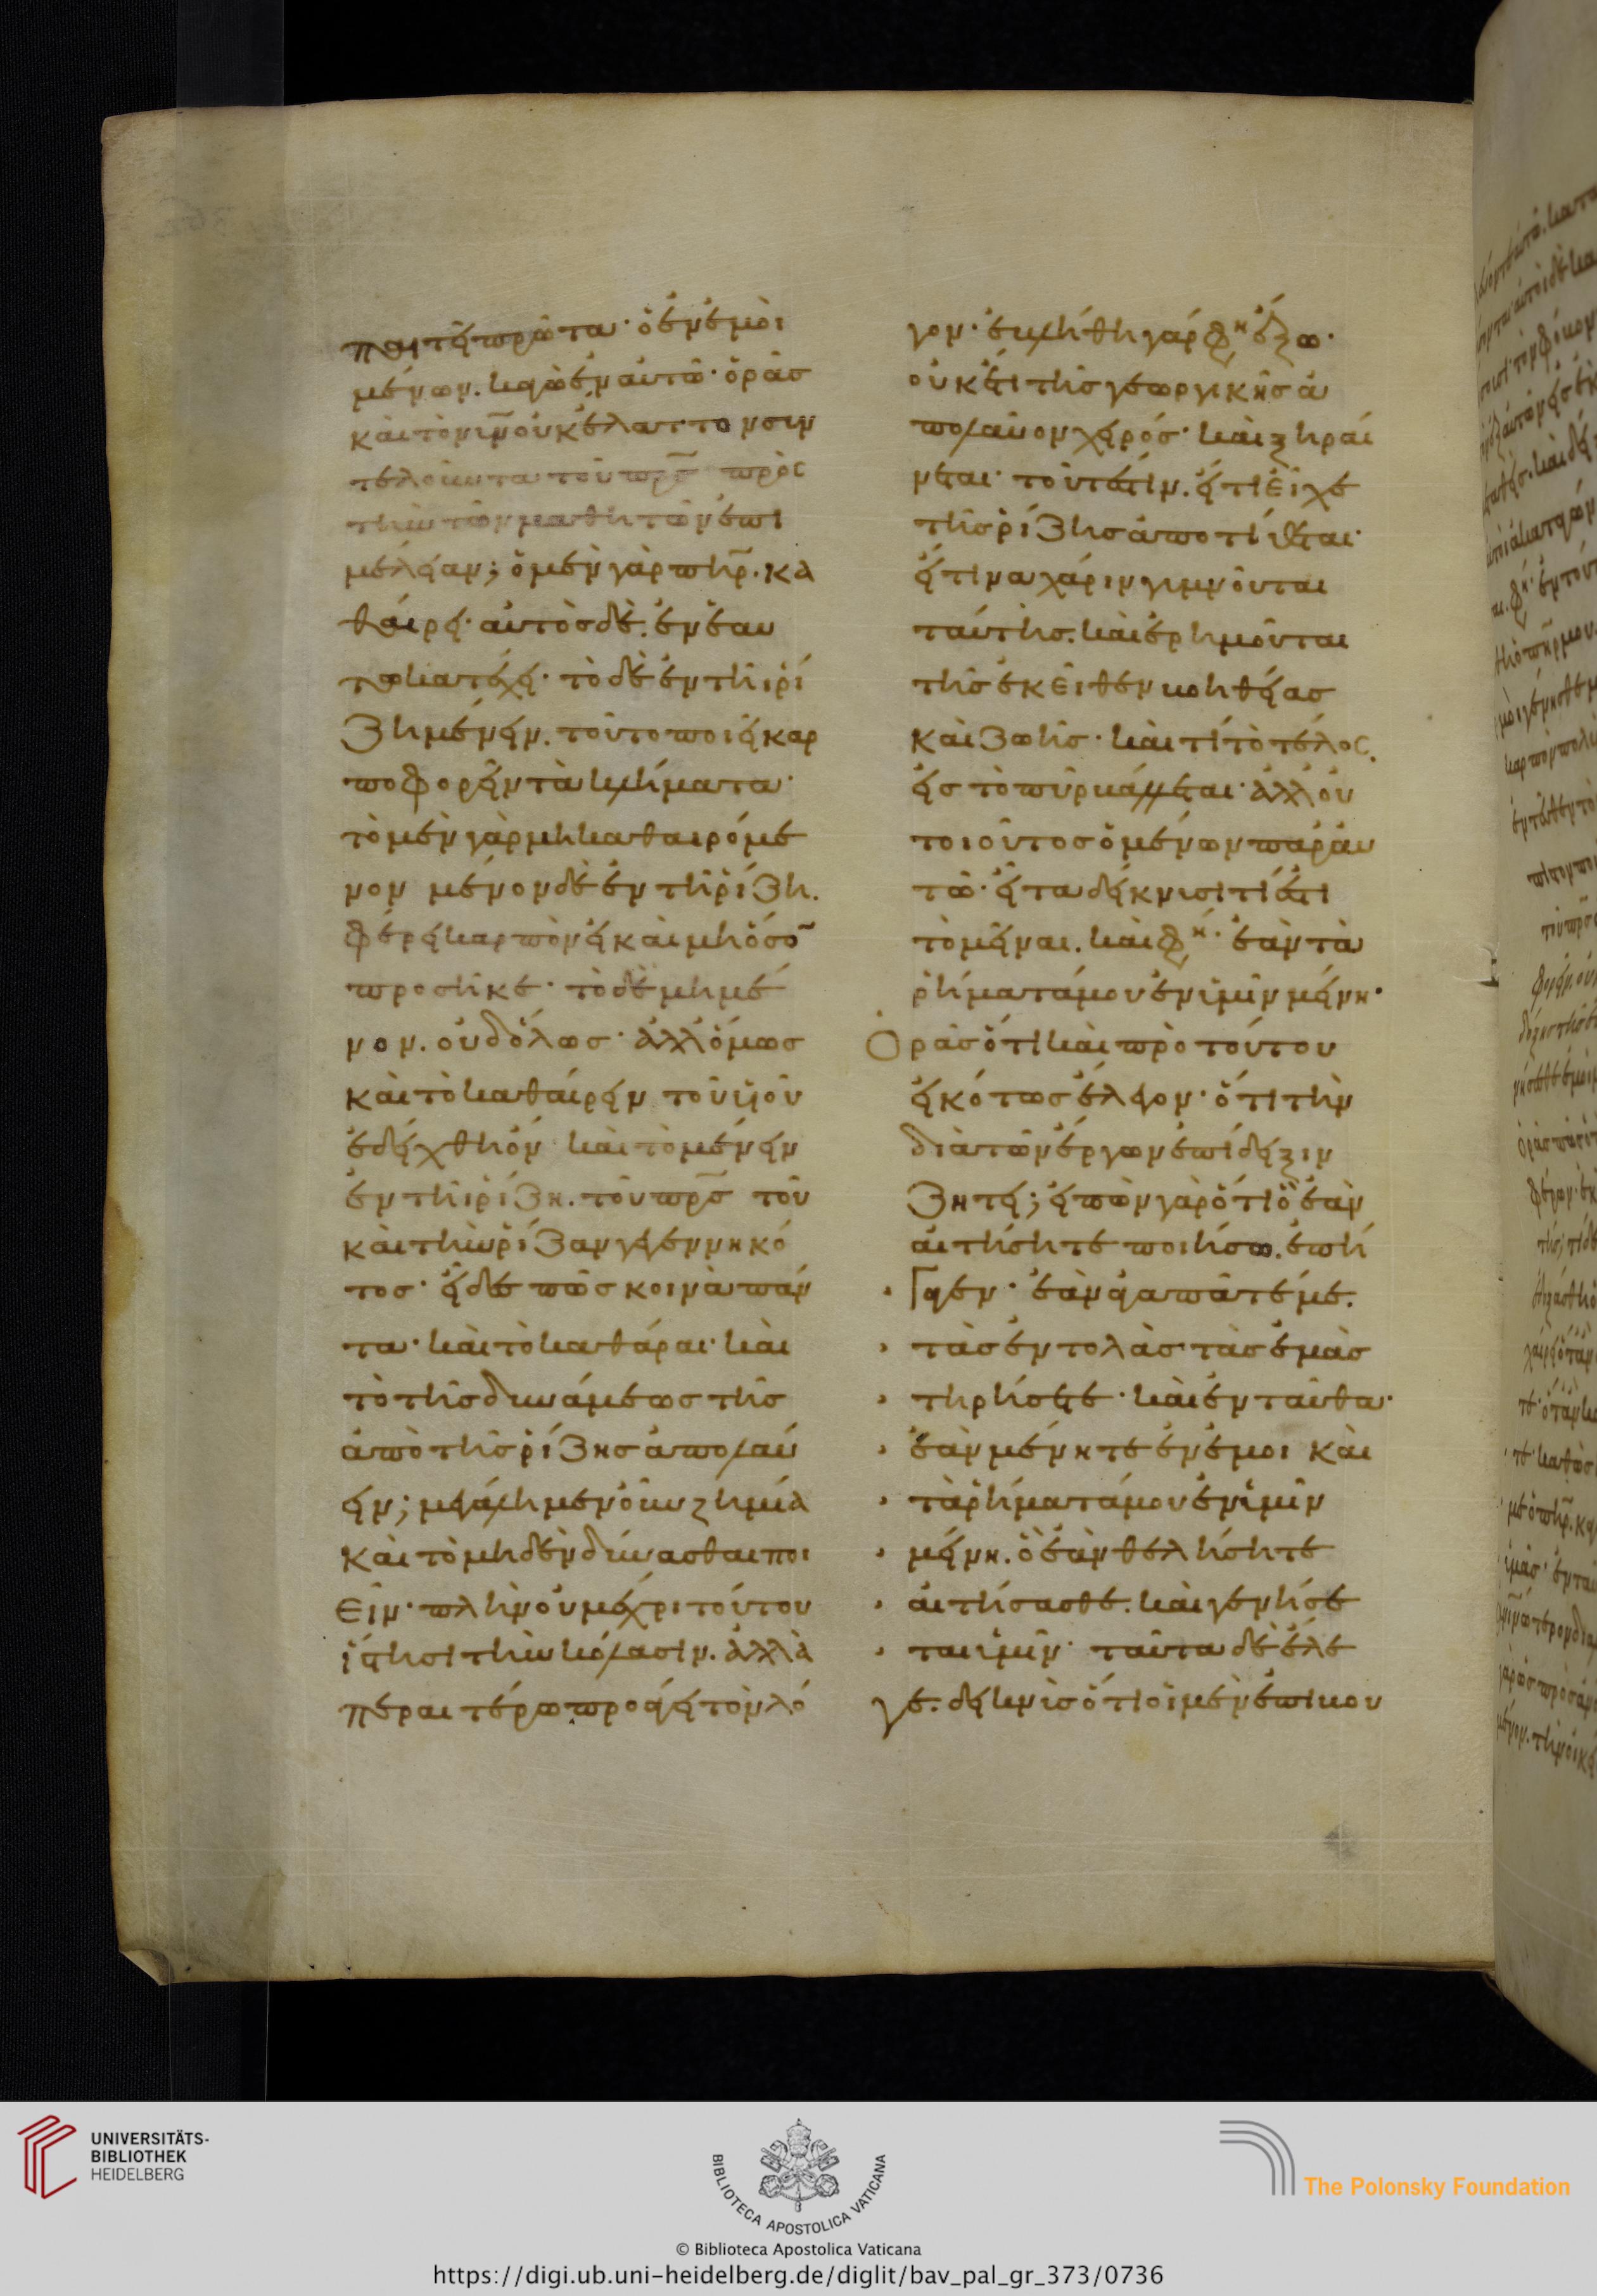 ποιεῖ τὰ πρῶτα· ὁ ἐν ἐμοὶ
μένων. κἀγὼ ἐν αὐτῶ· ὁρᾶσ
καὶ τὸν υ̅ν̅ οὐκ ἔλαττον συν
τελοῦντα τοῦ π̅ρ̅σ̅ πρὸς
τὴν τῶν μαθητῶν ἐπι
μέλειαν; ὁ μὲν γὰρ π̅η̅ρ̅. κα
θαίρει· αὐτὸσ δὲ. ἐν ἑαυ
τῶ κατέχει· τὸ δὲ ἐν τῆ ῥί
ζη μένειν. τοῦτο ποιεῖ καρ
ποφορεῖν τὰ κλήματα·
τὸ μὲν γὰρ μὴ καθαιρόμε
νον μένον δὲ ἐν τῆ ῥίζη.
φέρει καρπὸν εἰ καὶ μὴ ὅσο̅
προσῆκε· τὸ δὲ μὴ μέ
νον. οὐδόλωσ· ἀλλ ὅμωσ
καὶ τὸ καθαίρειν τοῦ υἱοῦ
ἐδείχθη ὄν· καὶ τὸ μένειν
ἐν τῆ ῥίζη. τοῦ π̅ρ̅σ̅ τοῦ
καὶ τὴν ῥίζαν γεγεννηκό
τοσ· εἶδεσ πῶσ κοινὰ πάν
τα· καὶ τὸ καθάραι· καὶ
τὸ τῆσ δυνάμεωσ τῆσ
ἀπὸ τῆσ ῥίζησ ἀπολαύ
ειν; μεγάλη μὲν οὖν ζημία
καὶ τὸ μηδὲν δύνασθαι ποι
εῖν· πλὴν οὐ μέχρι τούτου
ἵστησι τὴν κόλασιν. ἀλλὰ
περαιτέρω προάγει τὸν λό
γον· ἐβλήθη γάρ φη̅ ἔξω·
οὐκ ἔτι τῆσ γεωργικῆσ ἀ
πολαῦον χειρόσ· καὶ ξηραί
νεται· τοῦτέστιν. εἴ τι εἶχε
τῆσ ῥίζησ ἀποτίθεται·
εἴ τινα χάριν γυμνοῦται
ταύτησ. καὶ ἐρημοῦται
τῆσ ἐκεῖθεν βοηθείασ
καὶ ζωῆσ· καὶ τί τὸ τέλος.
εἰσ τὸ πῦρ βάλλεται· ἀλλ οὐ
τοιοῦτοσ ὁ μένων παρ αὐ
τῶ· εἶτα δείκνυσι τί ἐστι
τὸ μεῖναι. καὶ φη̅· ἐὰν τὰ
ῥήματά μου ἐν ὑμῖν μείνη·
Ὁρᾶσ ὅτι καὶ πρὸ τούτου
εἰκότωσ ἔλεγον· ὅτι τὴν
διὰ τῶν ἔργων ἐπίδειξιν
ζητεῖ; εἰπὼν γὰρ ὅτι ὃ ἐὰν
αἰτήσητε ποιήσω. ἐπή
γαγεν· ἐὰν ἀγαπᾶτέ με.
τὰσ ἐντολὰσ τὰσ ἐμὰσ
τηρήσετε· καὶ ἐνταῦθα·
ἐὰν μένητε ἐν ἐμοι καὶ
τὰ ῥήματά μου ἐν ὑμῖν
μείνη. ὃ ἐὰν θελήσητε
αἰτήσασθε. καὶ γενήσε
ται ὑμῖν· ταῦτα δὲ ἔλε
γε. δεικνὺσ ὅτι οἱ μὲν ἐπιβου
UNIVERSITÄTS-
BIBLIOTHEK
HEIDELBERG
BIBLIOTECA APOSTOLICA VATICANA
The Polonsky Foundation
© Biblioteca Apostolica Vaticana
https://digi.ub.uni-heidelberg.de/diglit/bav_pal_gr_373/0736